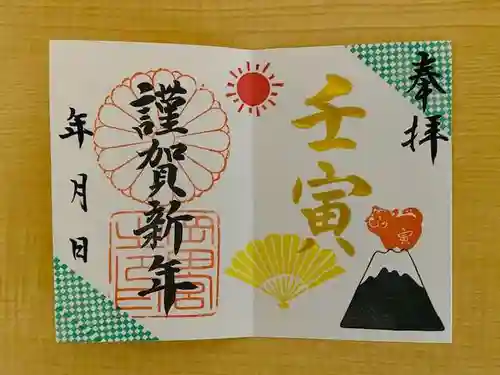 奉拝
壬寅
寅
謹賀新年
年月日